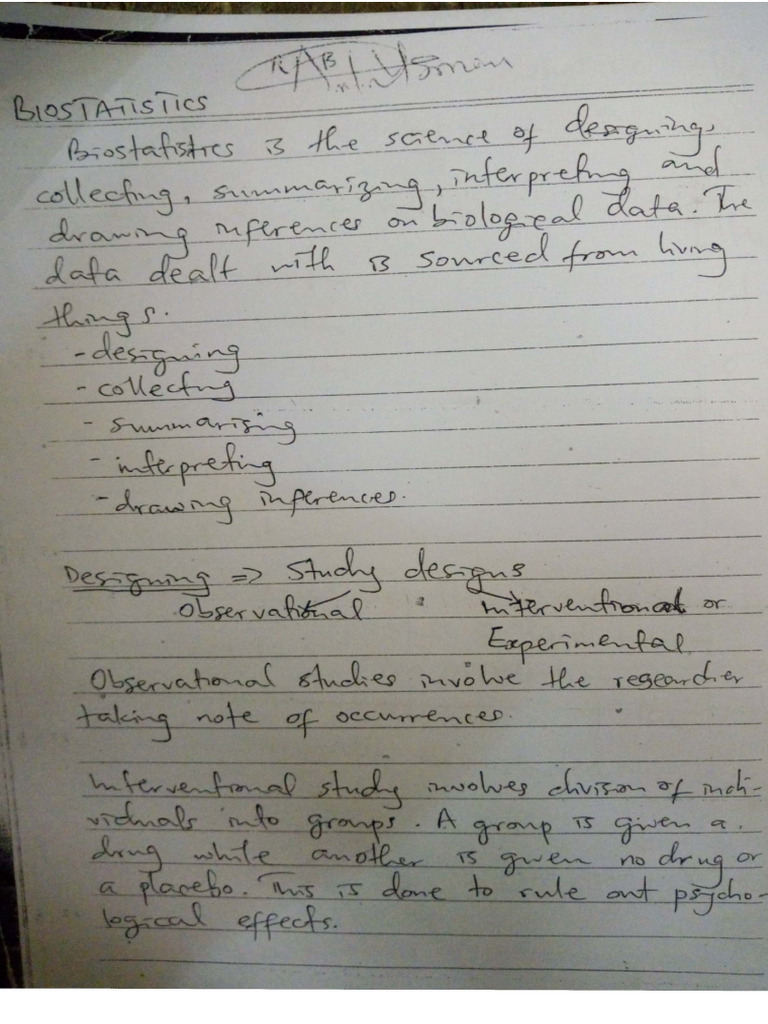 BIOSTATISTICS
Biostatistics is the science of designing,
collecting, summarizing, interpreting and
drawing inferences on biological data. The
data dealt with is sourced from living
things.
- designing
- collecting
- summarising
- interpreting
- drawing inferences.
Designing => Study designs
Observational interventional or
Experimental
Observational studies involve the researcher
taking note of occurrences.
Interventional study involves division of indi-
viduals into groups. A group is given a
drug while another is given no drug or
a placebo. This is done to rule out psycho-
logical effects.